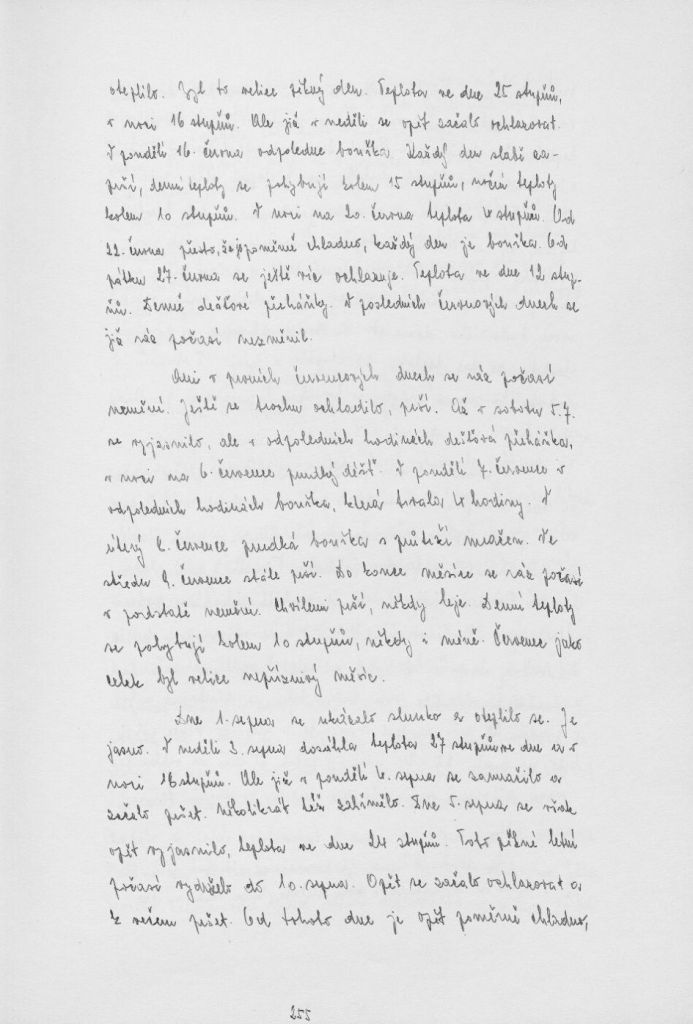 oteplilo. Byl to velice pěkný den. Teplota ve dne 25 stupňů,
v noci 16 stupňů. Ale již v neděli se opět začalo ochlazovat.
V pondělí 16. června odpoledne bouřka. Každý den slabě za-
prší, denní teploty se pohybují kolem 15 stupňů, noční teploty
kolem 10 stupňů. V noci na 20. června teplota 4 stupňů. Od
22. června přesto, že je poměrně chladno, každý den je bouřka. Od
pátku 27. června se ještě víc ochlazuje. Teplota ve dne 12 stup-
ňů. Denně dešťové přeháňky. V posledních červnových dnech se
již ráz počasí nezměnil.
Ani v prvních červencových dnech se ráz počasí
nemění. Ještě se trochu ochladilo, prší. Až v sobotu 5.7.
se vyjasnilo, ale v odpoledních hodinách dešťová přeháňka,
v noci na 6. července prudký déšť. V pondělí 7. července v
odpoledních hodinách bouřka, která trvala 4 hodiny. V
úterý 8. července prudká bouřka s průtrží mračen. Ve
středu 9. července stále prší. Do konce měsíce se ráz počasí
v podstatě nemění. Chvílemi prší, někdy leje. Denní teploty
se pohybují kolem 10 stupňů, někdy i méně. Červenec jako
celek byl velice nepříznivý měsíc.
Dne 1. srpna se ukázalo slunko a oteplilo se. Je
jasno. V neděli 3. srpna dosáhla teplota 27 stupňů ve dne a v
noci 16 stupňů. Ale již v pondělí 4. srpna se zamračilo a
začalo pršet. Několikrát též zahřmělo. Dne 5. srpna se však
opět vyjasnilo, teplota ve dne 24 stupňů. Toto pěkné letní
počasí vydrželo do 10. srpna. Opět se začalo ochlazovat a
k večeru pršet. Od tohoto dne je opět poměrně chladno,
255